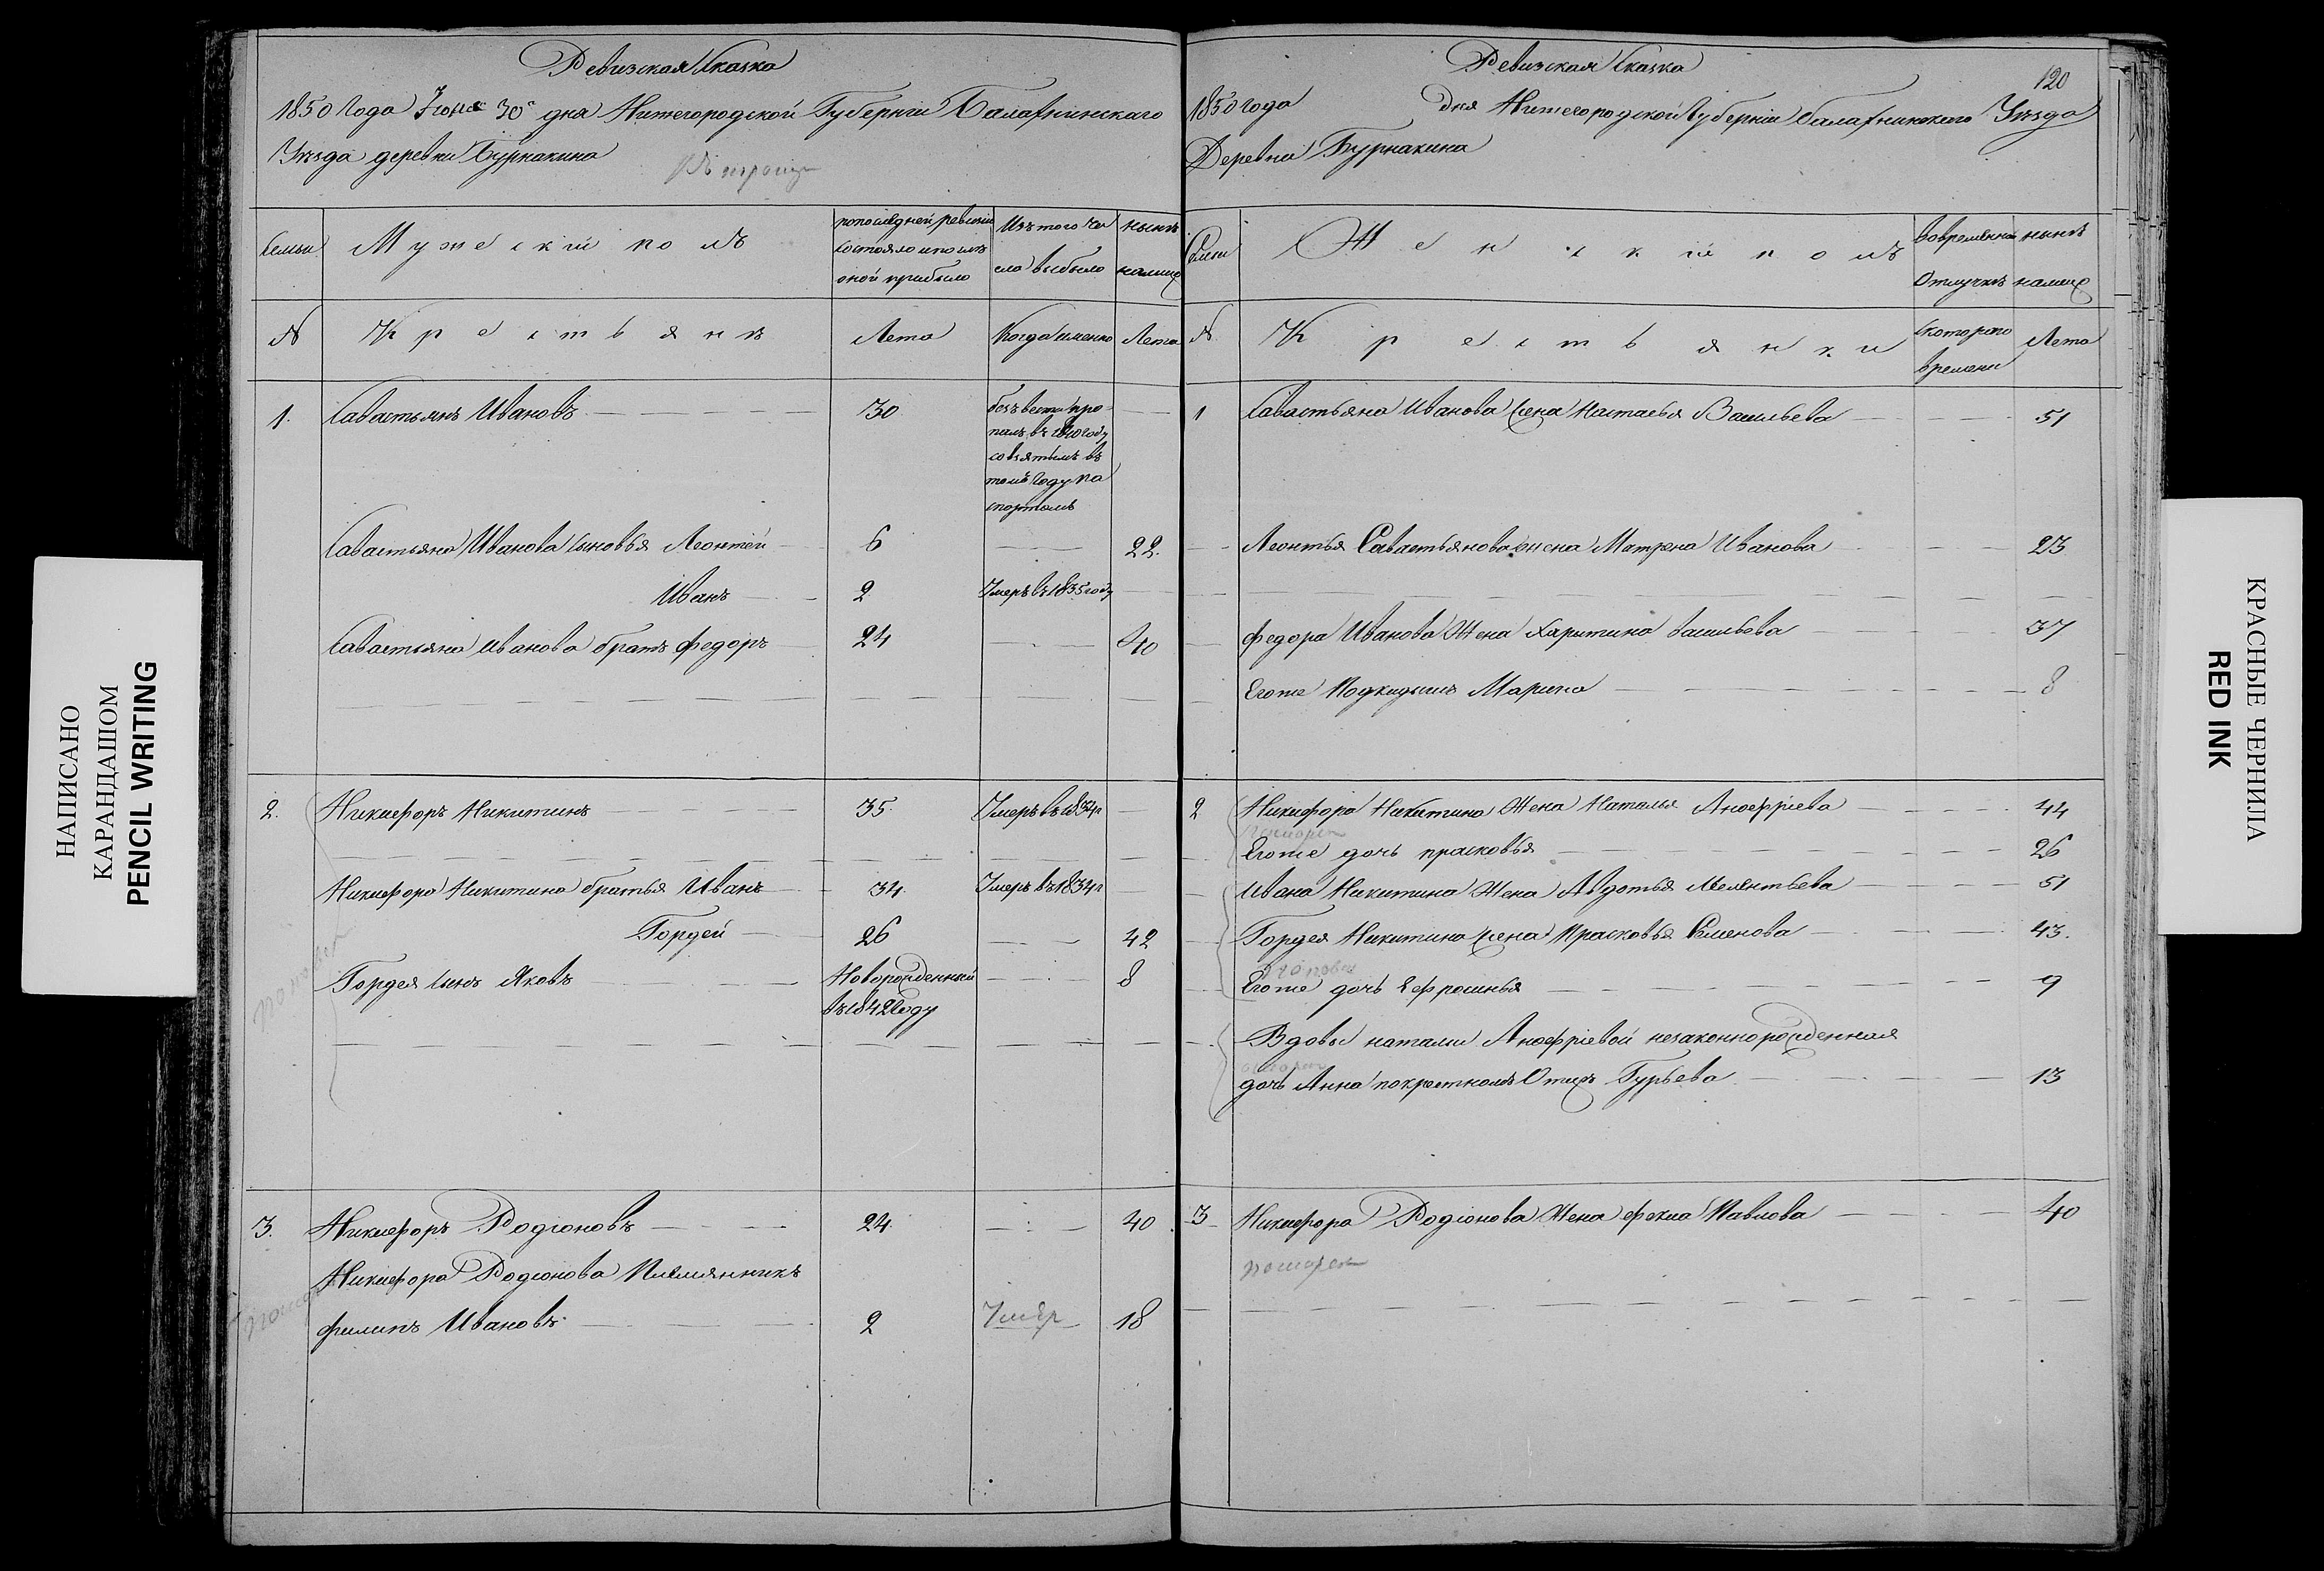 Ревизская Сказка
1850 Года Июня 30º дня Нижегородской Губернiи Балахнинскаго
Уѣзда деревни Бурнакина
Семьи Мужескiй полъ
попослѣдней ревизiи
состояло ипослѣ
оной прибыло
Изътого чи
сла выбыло
нынѣ
налицо
№ Крестьянѣ Лета Когда именно Лета
1. Савастьянъ Ивановъ 30
безъвести про-
палъ въ 1840 году
совзятымъ въ
томъ Году па
спортомъ
Савастьяна Иванова сыновья Леонтей 6 22.
Иванъ 2 Умеръ въ 1835 году
Савастьяна Иванова братъ федоръ 24 40
2. Никифоръ Никитинъ 35. Умеръ въ 1834г
Никифора Никитина братья Иванъ 34 Умеръ въ 1834г
Гордей 26 42
Гордея сынъ Яковъ Новорожденный 8
въ 1842 Году
3. Никифоръ Родiоновъ 24 40
Никифора Родiонова Племянникъ
филипъ Ивановъ 2 Умер 18
Ревизская Сказка
120
1850 года дня Нижегородской Губернiи Балахнинскаго Уѣзда
Деревни Бурнакина
Семьи Женскiй полъ
вовременной
Отлучкѣ
нынѣ
налицо
№ Крестьянки
скотораго
времени
Лета
1 Савастьяна Иванова жена Настасья Васильева 51
Леонтья Савастьянова жена Матрена Иванова 23
федора Иванова Жена Харытина васильева 37
Егоже Подкидышъ Марина 8
2 Никифора Никитина Жена Наталья Анофрiева 44
Егоже дочь прасковья 26
Ивана Никитина Жена Авдотья Мелентьева 51
Гордея Никитина жена Прасковья Семенова 43.
Егоже дочь Ефросинья 9
Вдовы натальи Анофрiевой незаконнорожденная
дочь Анна покрестномъ Отцѣ Гурьева 13
3 Никифора Родiонова Жена фекла Павлова 40
НАПИСАНО
КАРАНДАШОМ
PENCIL WRITING
КРАСНЫЕ ЧЕРНИЛА
RED INK